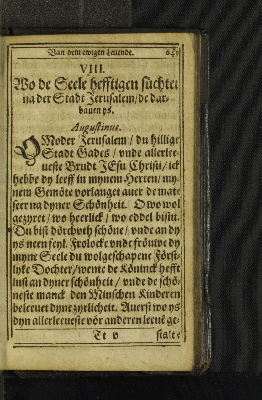 Van dem ewigen Leuende.
VIII.
Wo de Seele hefftigen süchtet
na der Stadt Jerusalem / de dar-
bauen ys.
Augustinus.
O Moder Jerusalem / du hillige
Stadt Gades / vnde allerle-
ueste Brudt JEsu Christi / ick
hebbe dy leeff in mynem Herten / my-
nem Gemöte vorlanget auer de mate
seer na dyner Schönheit. O wo wol
gezyret / wo heerlick / wo eddel bistu.
Du bist dörchvth schöne / vnde an dy
ys neen feyl. Frolocke vnde fröuwe dy
myne Seele du wolgeschapene Först-
lyke Dochter / wente de Köninck hefft
lust an dyner schönheit / vnde de schö-
neste manck den Minschen Kinderen
beleeuet dyne zyrlicheit. Auerst wo ys
dyn allerleeueste vör anderen leeue ge-
Tt v
stalt?